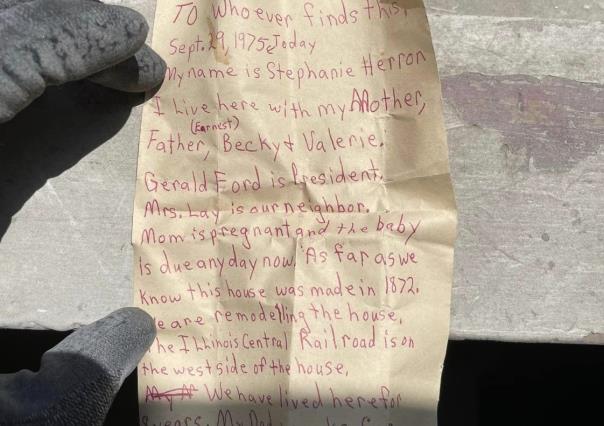 To Whoever finds this,
Sept. 29, 1975, Today
My name is Stephanie Herron
I Live here with my Mother,
(Earnest)
Father, Becky & Valerie.
Gerald Ford is President.
Mrs. Lay is our neighbor.
Mom is pregnant and the baby
is due any day now. As far as we
know this house was made in 1872.
We are remodelling the house.
The Illinois Central Railroad is on
the west side of the house.
We have lived here for
years. My Dad